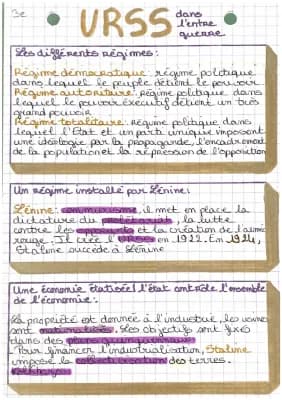 3e
URSS dans
l'entre
guerre
Les différents régimes :
Régime démocratique : régime politique
dans lequel le peuple détient le pouvoir
Régime autoritaire : régime politique dans
lequel le pouvoir exécutif détient un très
grand pouvoir
Régime totalitaire : régime politique dans
lequel l'État et un parti unique imposent
une idéologie par la propagande, l'encadrement
de la population et la répression de l'opposition
Un régime installé par Lénine :
Lénine : communisme, il met en place la
dictature du prolétariat, la lutte
contre les opposants et la création de l'armée
rouge. Il crée l'URSS en 1922. En 1924,
Staline succède à Lénine
Une économie étatisée : l'état contrôle l'ensemble
de l'économie :
La propriété est donnée à l'industrie, les usines
sont nationalisées. Les objectifs sont fixés
dans des plans quinquennaux
Pour financer l'industrialisation, Staline
impose la collectivisation des terres.
kolkhozes